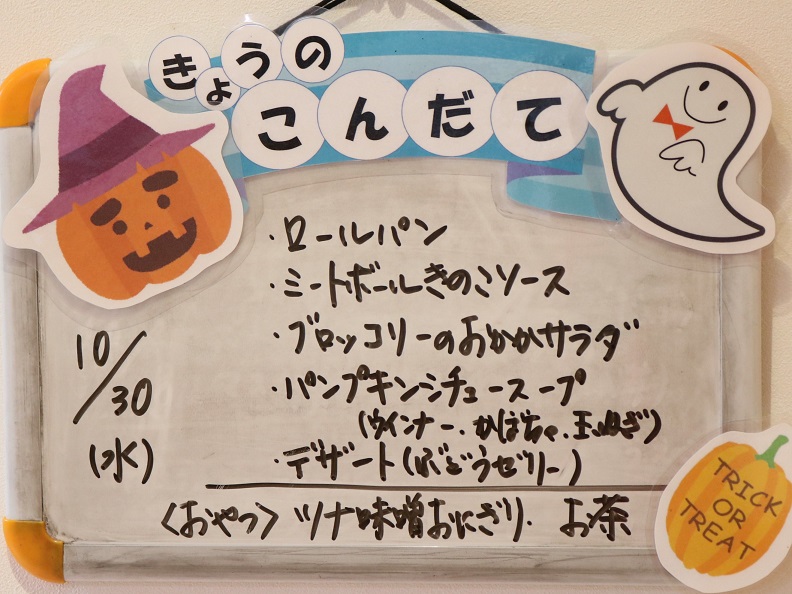 きょうの
こんだて
10/30
(水)
・ロールパン
・ミートボールきのこソース
・ブロッコリーのおかかサラダ
・パンプキンシチュースープ
(ウインナー、かぼちゃ、玉ねぎ)
・デザート(ぶどうゼリー)
〈おやつ〉ツナ味噌おにぎり・お茶
TRICK
OR
TREAT